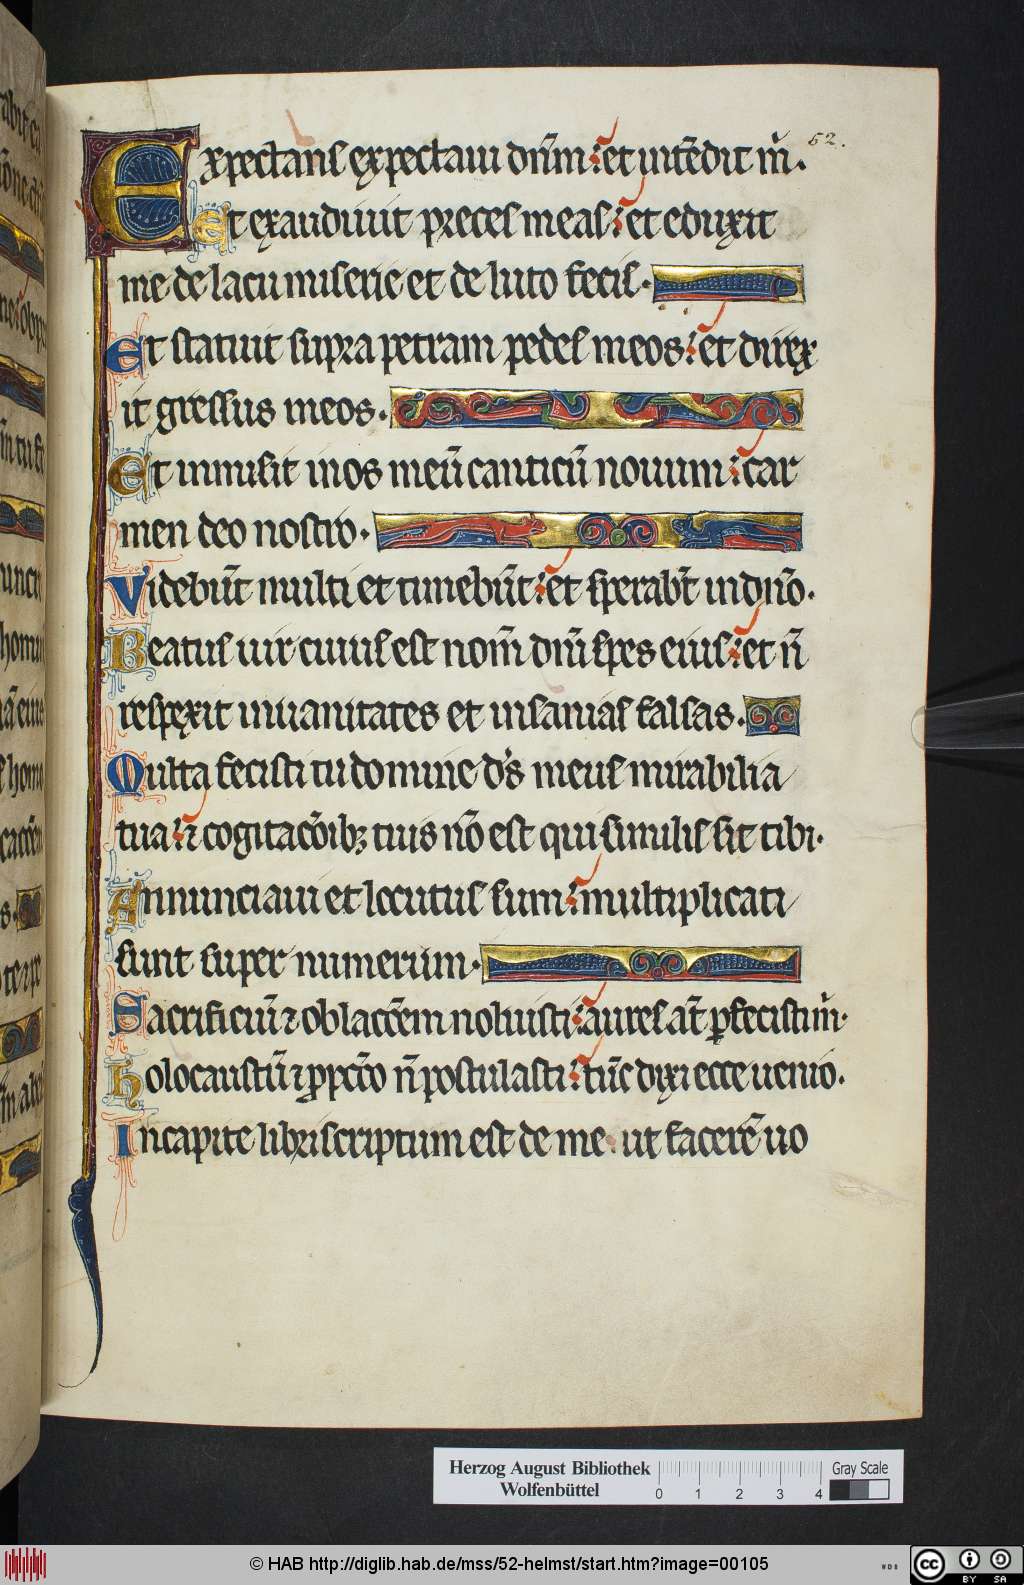 52.
Expectans expectaui dn̄m: et intēdit m̄.
Et exaudiuit preces meas: et eduxit
me de lacu miserie et de luto fecis.
Et statuit supra petram pedes meos: et direx
it gressus meos.
Et inmisit in os meū canticū nouum: car
men deo nostro.
Videbūt multi et timebūt: et sperabt̄ in dn̄o.
Beatus uir cuius est nom̄ dn̄i spes eius: et n̄
respexit in uanitates et insanias falsas.
Multa fecisti tu domine ds̄ meus mirabilia
tua: ⁊ cogitacōibꝫ tuis nō est qui similis sit tibi.
Annunciaui et locutus sum: multiplicati
sunt super numerum.
Sacrificiū ⁊ oblaccōem noluisti: aures at̄ ꝑfecisti m̄.
holocaustū ⁊ ꝓ pcc̄o n̄ postulasti: tūc dixi ecce uenio.
In capite libri scriptum est de me. ut facerē uo
Herzog August Bibliothek
Wolfenbüttel
0 1 2 3 4
Gray Scale
© HAB http://diglib.hab.de/mss/52-helmst/start.htm?image=00105
cc BY SA